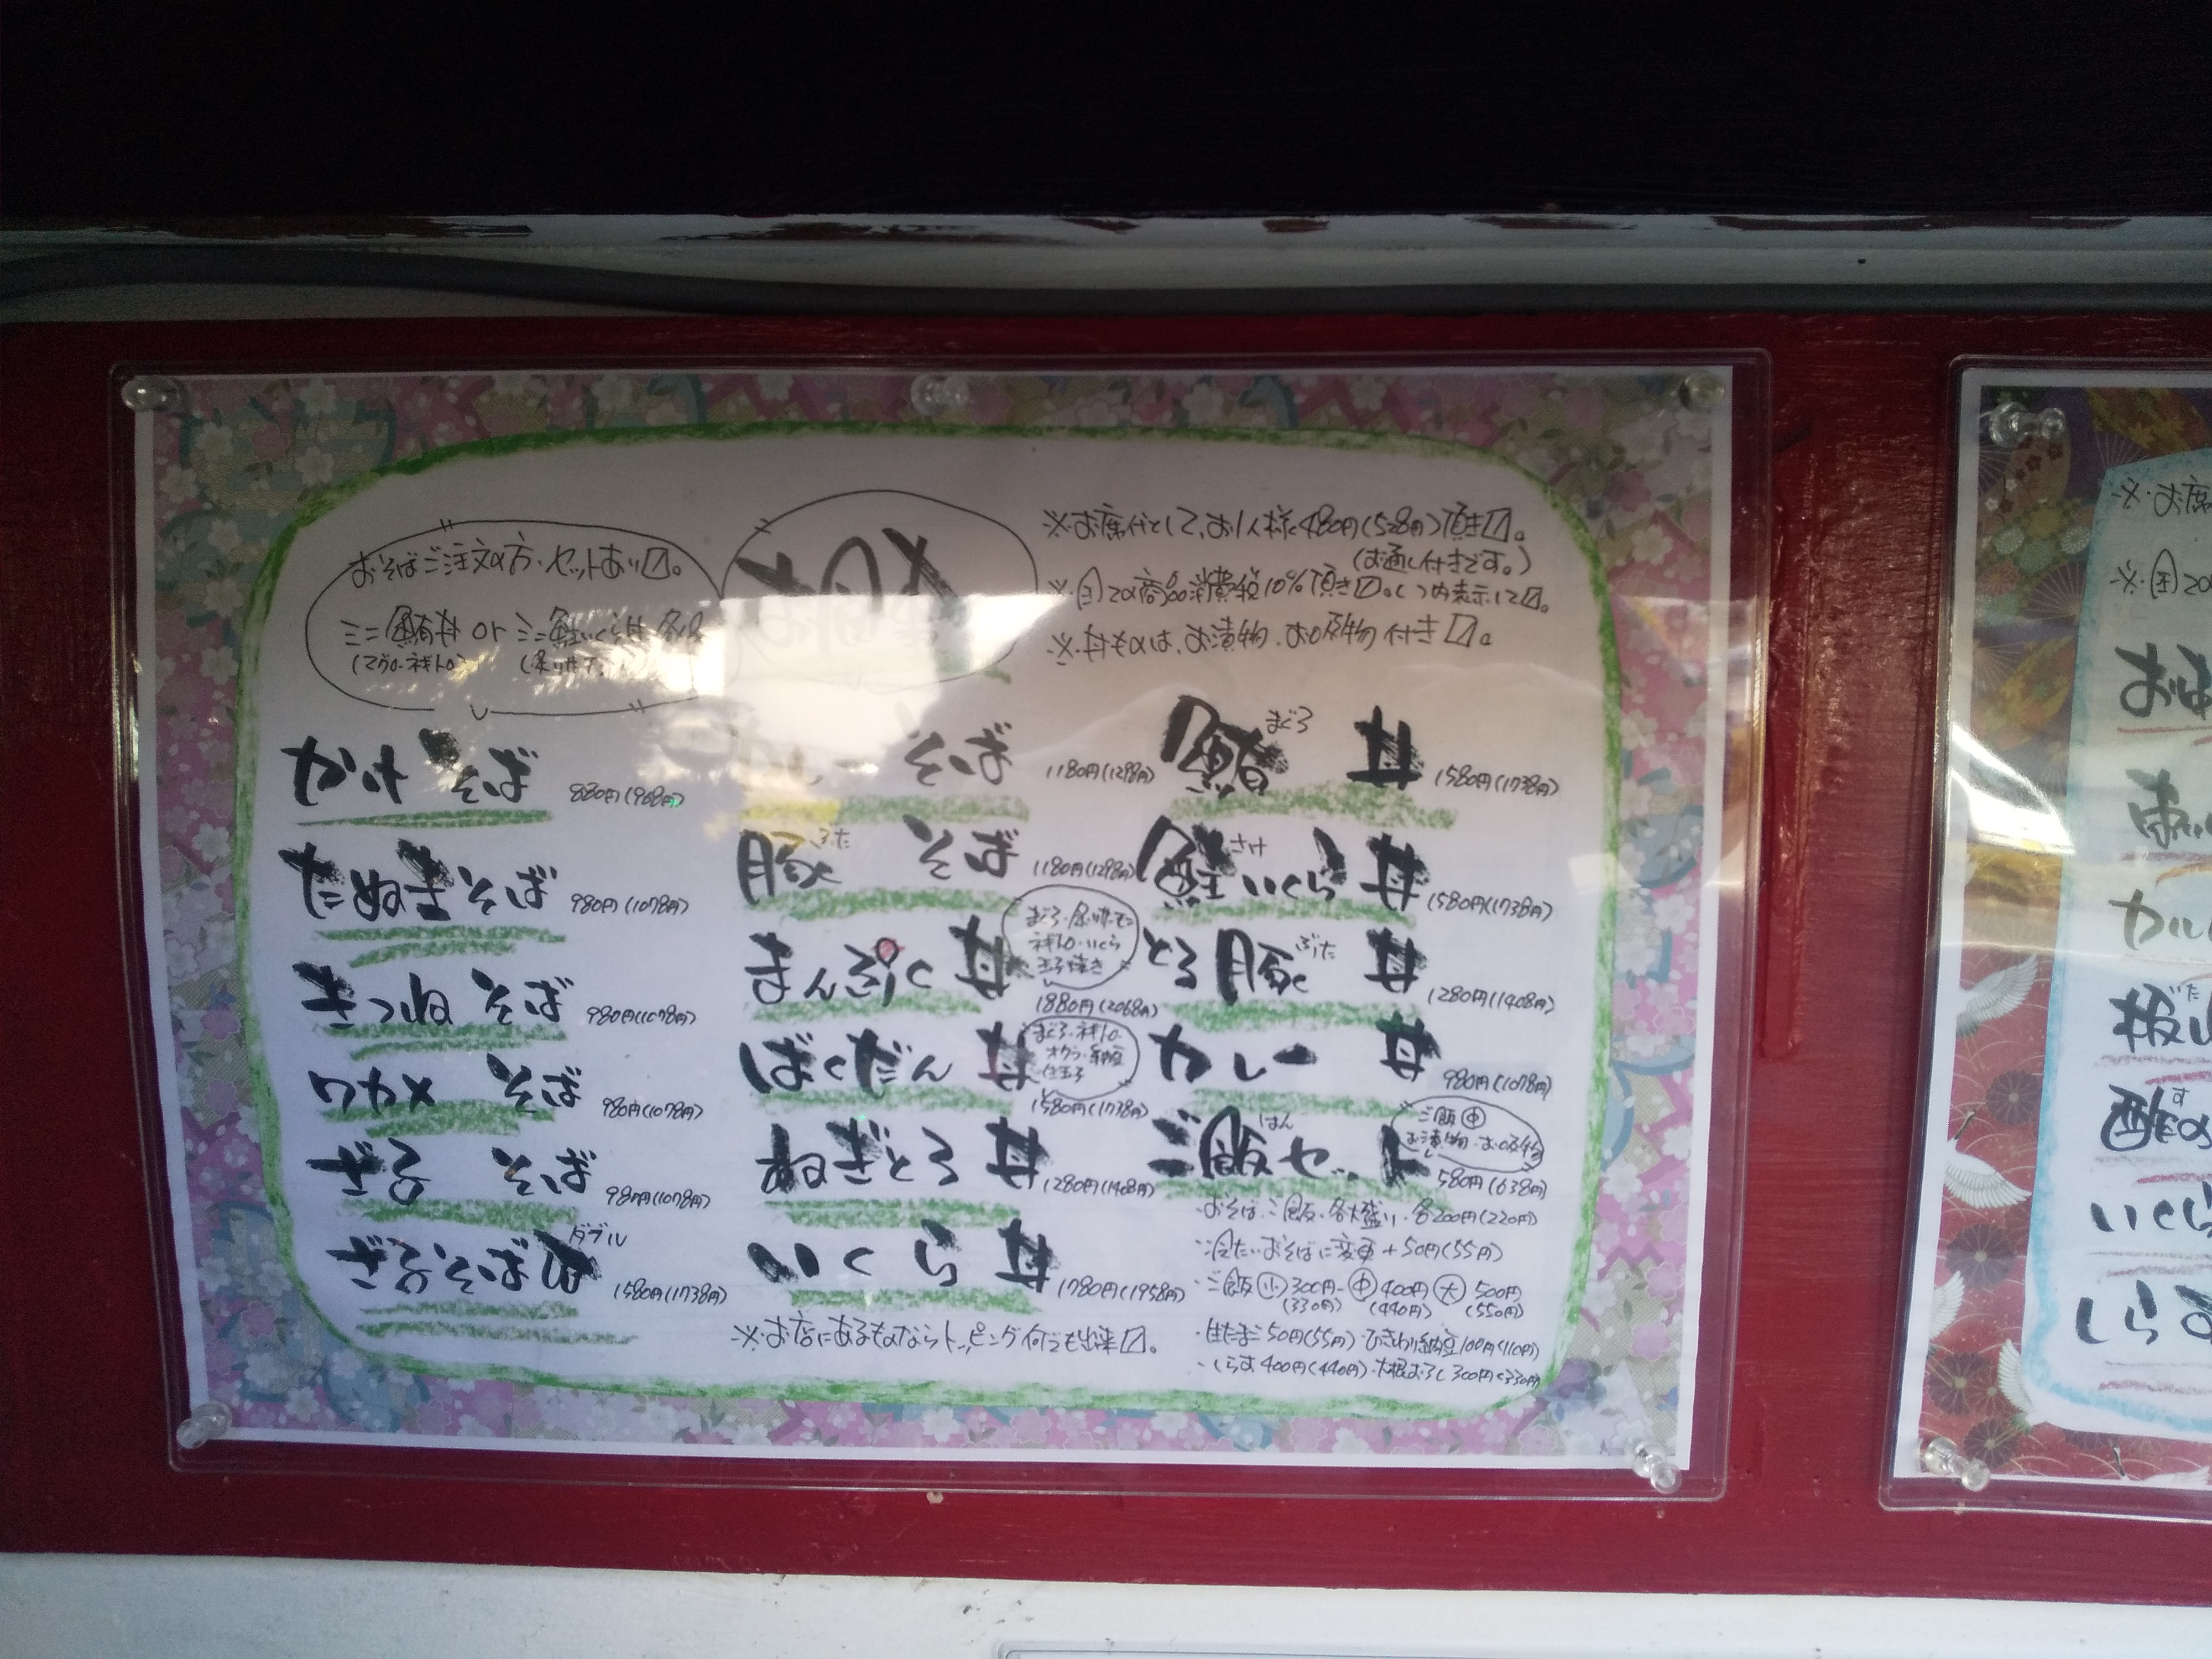 おそばご注文の方・セットあり〼。
ミニ鮪丼 or ミニ鮭いくら丼
(マグロ・ネギトロ)
〆
※お席代として、お1人様に480円(528円)頂き〼。
(お通し付きです。)
消費税10%頂き〼。
※丼ものは、お漬物・お吸物付き〼。
かけそば 880円(968円)
たぬきそば 980円(1078円)
きつねそば 980円(1078円)
ワカメそば 980円(1078円)
ざるそば 980円(1078円)
ざるそばW ダブル 1580円(1738円)
そば 1180円(1298円)
豚そば ぶた 1180円(1298円)
まんぷく丼 1880円(2068円)
ネギトロ・いくら
玉子焼き
ばくだん丼 1580円(1738円)
まぐろ・ネギトロ
オクラ・納豆
生玉子
ねぎとろ丼 1280円(1408円)
いくら丼 1780円(1958円)
※お店にあるものならトッピング何でも出来〼。
鮪丼 まぐろ 1580円(1738円)
鮭いくら丼 さけ 1580円(1738円)
とろ豚丼 ぶた 1280円(1408円)
カレー丼 980円(1078円)
ご飯セット はん 580円(638円)
ご飯㊥
お漬物・お吸物
・おそば、ご飯・各大盛り・各200円(220円)
・冷たいおそばに変更+50円(55円)
・ご飯小300円・㊥400円 大500円
(330円) (440円) (550円)
・生たまご50円(55円)・ひきわり納豆100円(110円)
・しらす400円(440円)・大根おろし300円(330円)
※お席
いくら
しらす